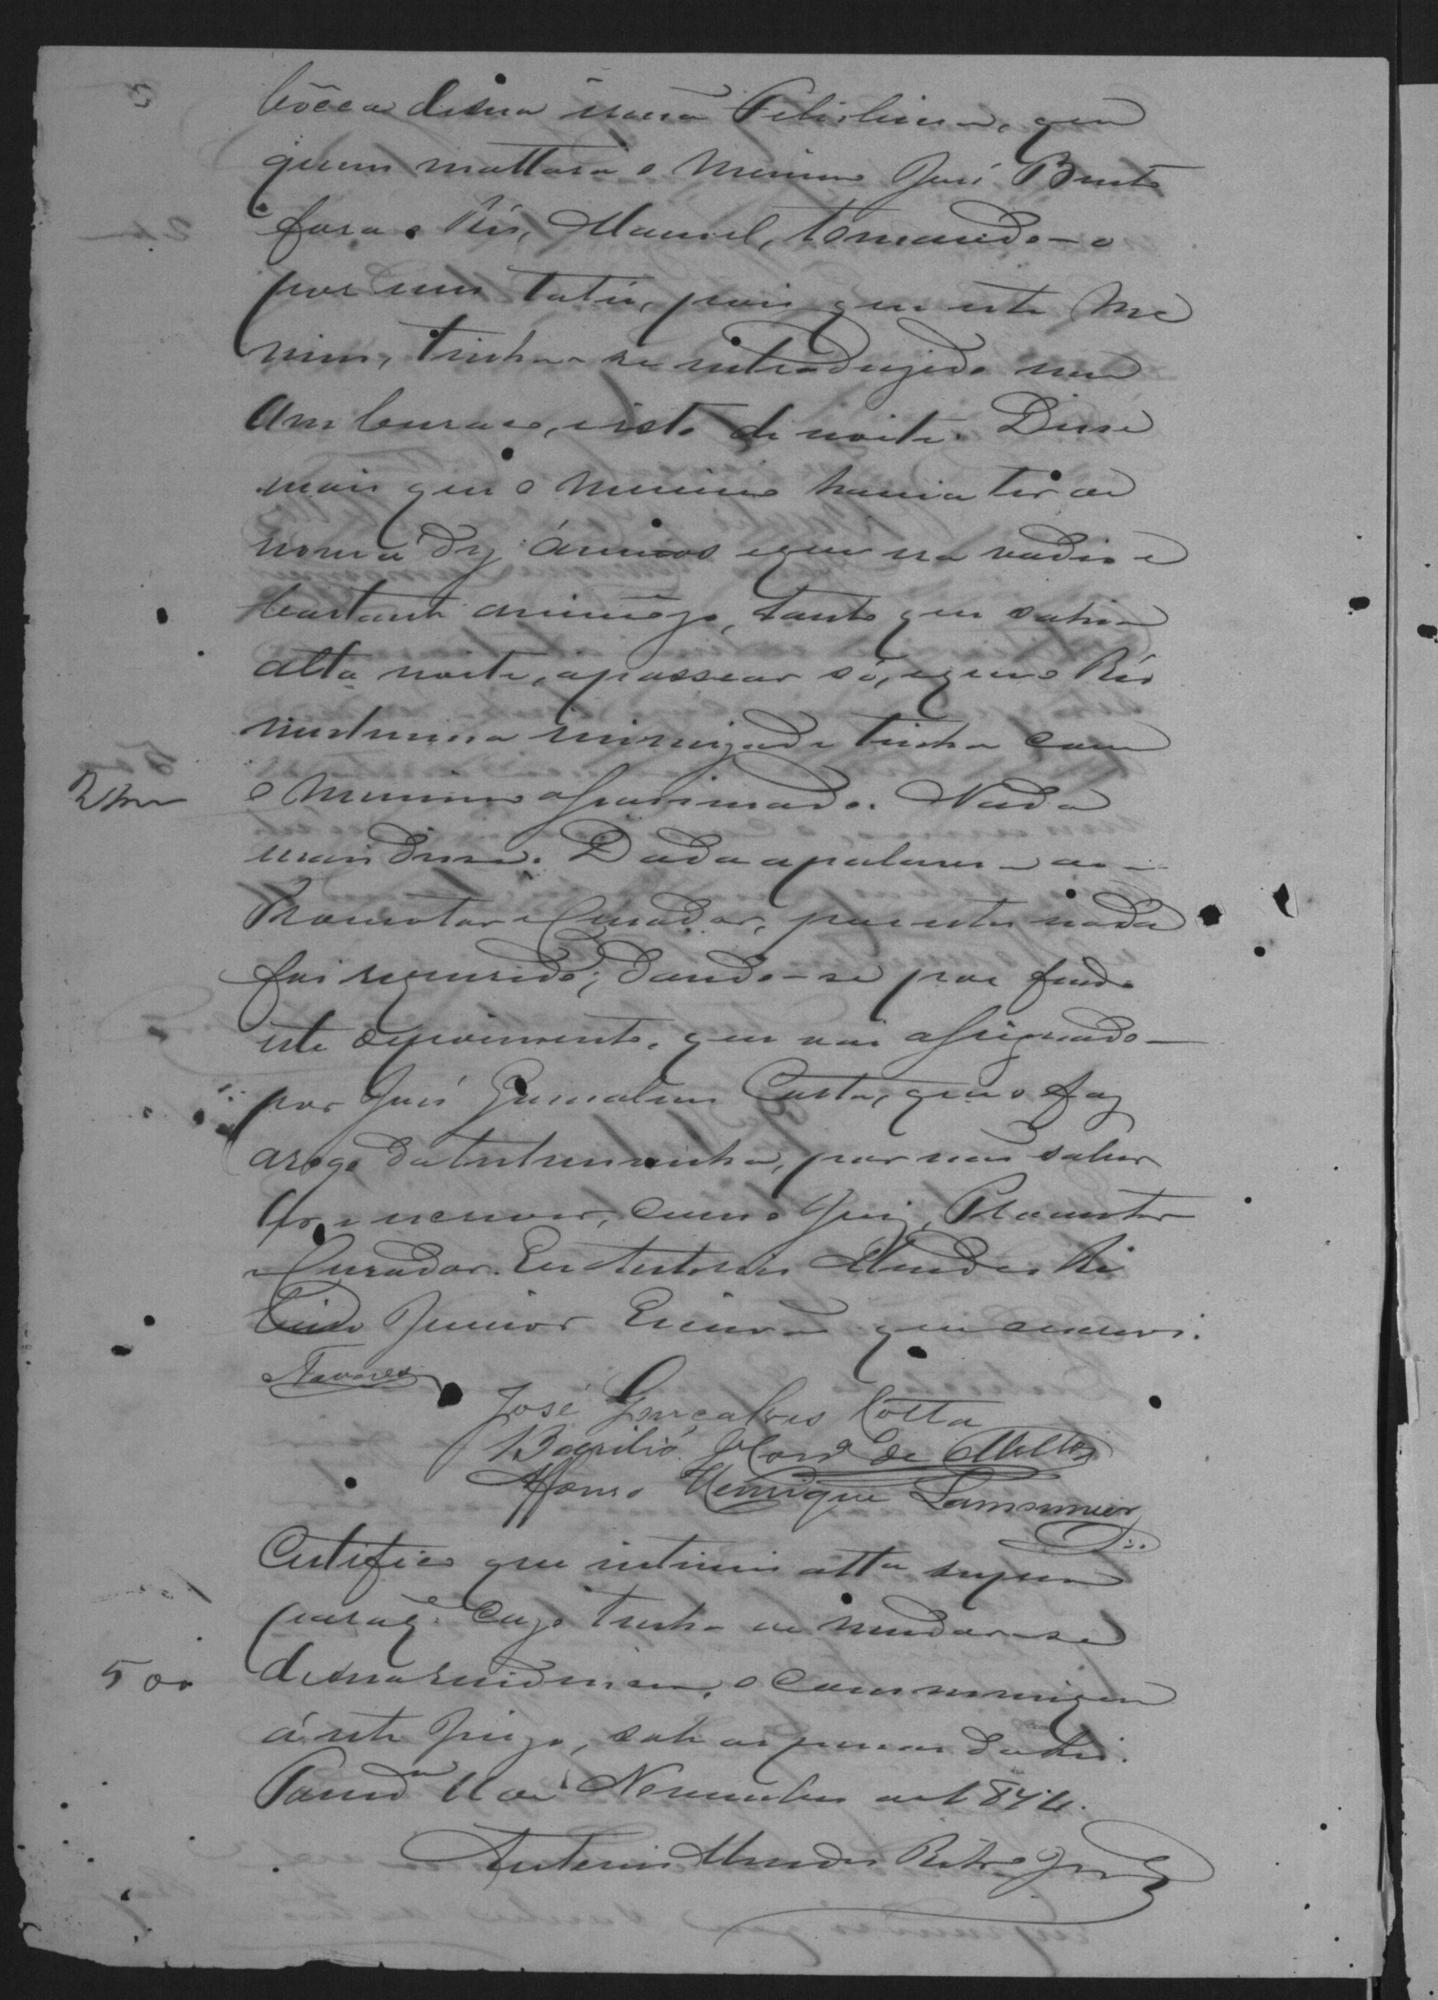 bôcca de sua irmã Felisbina, que
quem mattara o menino José Bento
fora o Réo, Manoel, tomando-o
por um Tatú, pois que este me
nino, tinha-se introdusido
um buraco, isto de noite. Disse
mais que o menino havia ter de
nove a dez annos e que
bastante animôso, tanto que sahia
alta noite, a passear só, e que o Réo
nenhuma inimizade tinha com
o menino assassinado. Nada
mais disse. Dada a palavra ao
Promotor e Curador, por estes nada
foi requerido; dando-se por findo
este depoimento, que vai assignado
por José Gonçalves Costa, que o faz
a rogo da testemunha, por não saber
ler e escrever, com o Juiz, Promotor
e Curador. Eu Antonio Mendes Ri
beiro Junior Escrivão que escrevi.
Tavares
José Gonçalves Costa
Basilio de Mello
Afonso Henrique Lamounier
Certifico que intimei a testª supra
para qᵉ caso tenha de mudar-se
de sua residencia, o communique
á este Juizo, sob as penas da lei.
11 de Novembro de 1874.
Antonio Mendes Ribrº Jor
500